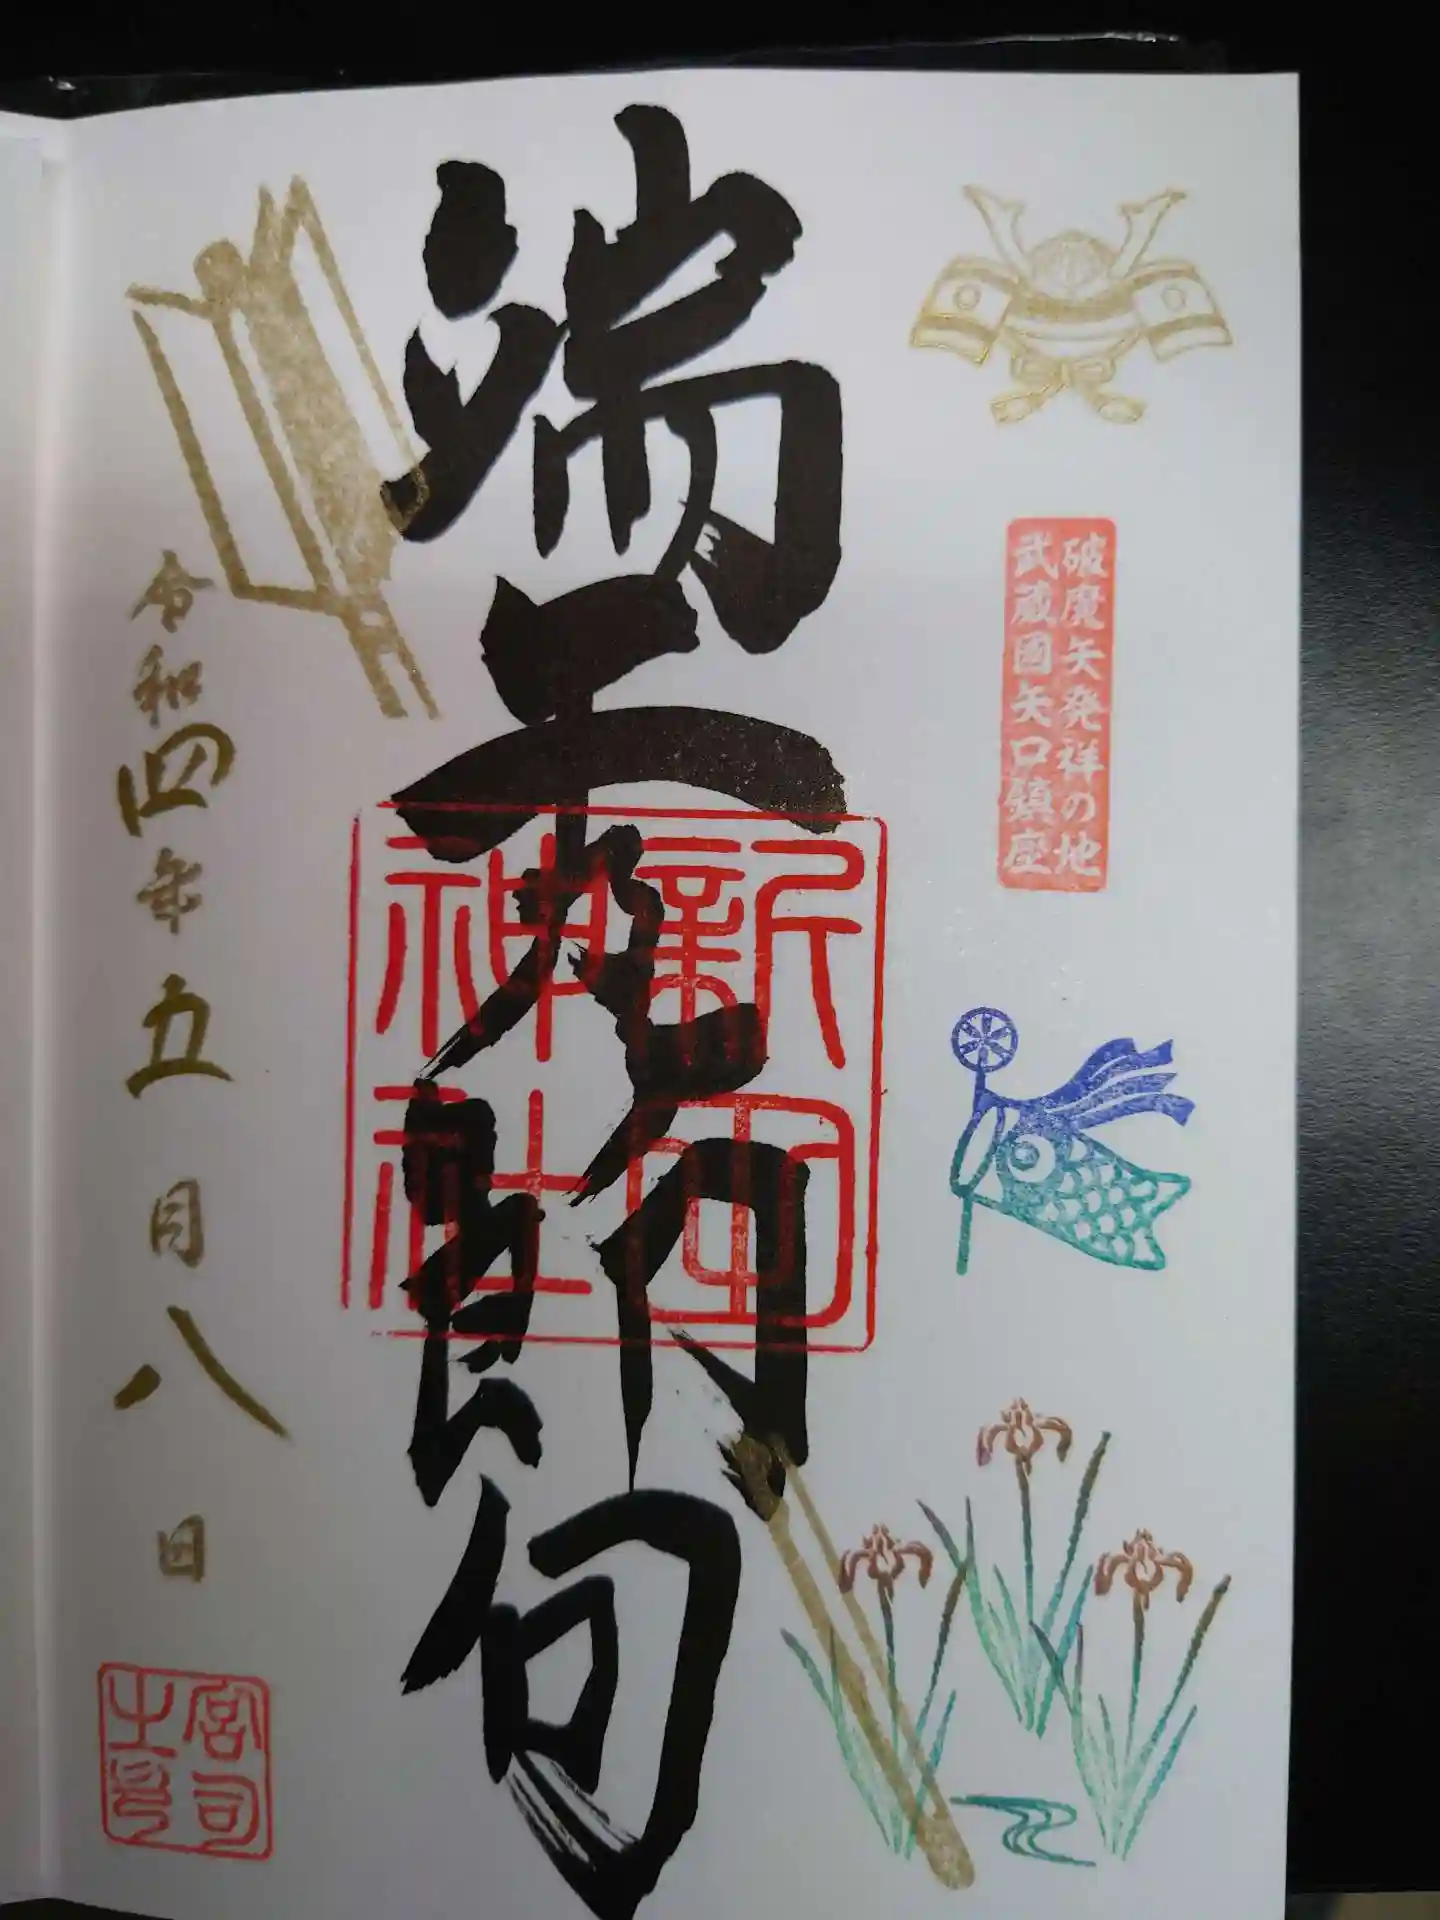 破魔矢発祥の地
武蔵國矢口鎮座
端午節句
新田
神社
令和四年五月八日
宮司
之印